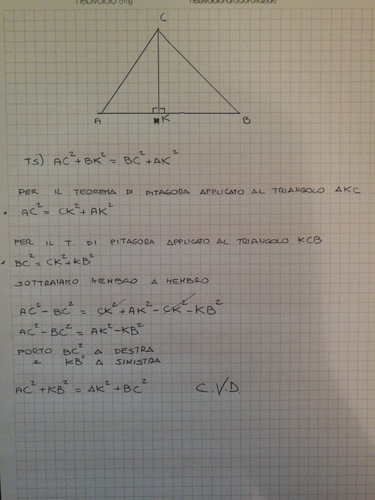 C
A
K
B
TS) AC²+BK² = BC²+AK²
PER IL TEOREMA DI PITAGORA APPLICATO AL TRIANGOLO AKC
• AC² = CK²+AK²
PER IL T. DI PITAGORA APPLICATO AL TRIANGOLO KCB
• BC² = CK²+KB²
SOTTRAIAMO MEMBRO A MEMBRO
AC²-BC² = CK²+AK²-CK²-KB²
AC²-BC² = AK²-KB²
PORTO BC² A DESTRA
E KB² A SINISTRA
AC²+KB² = AK²+BC² C.V.D.